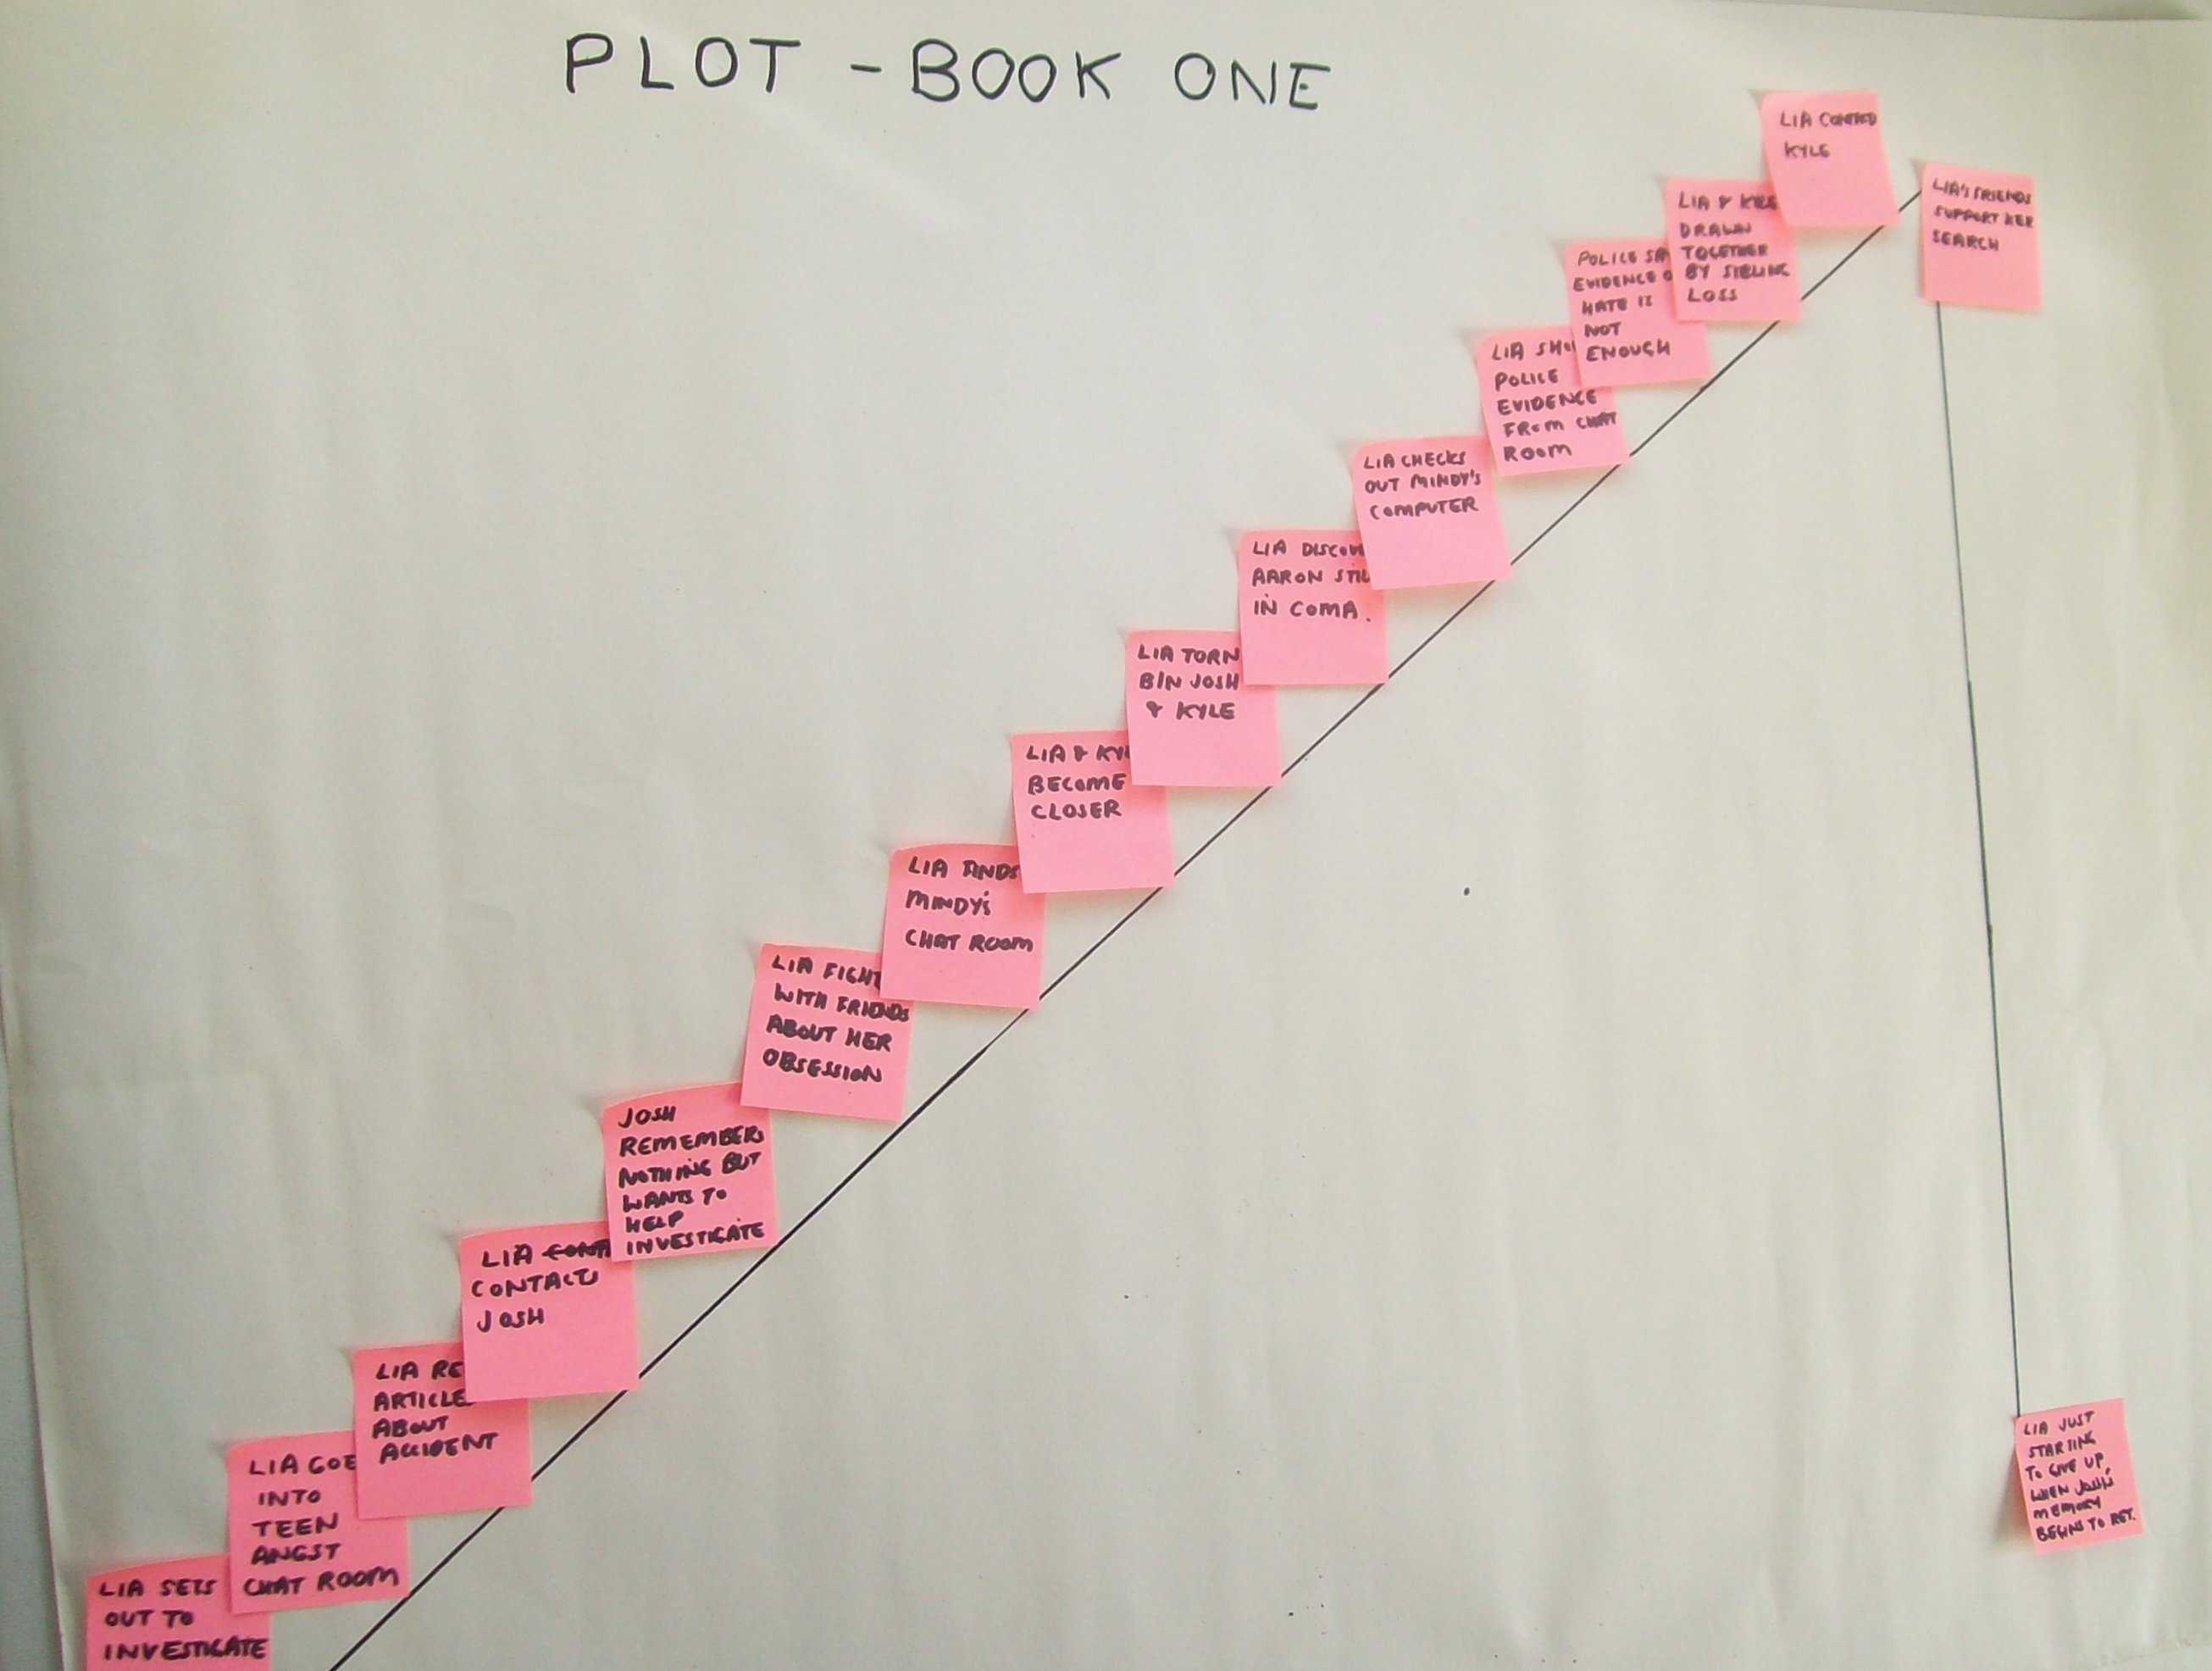 PLOT - BOOK ONE
LIA SETS
OUT TO
INVESTIGATE
LIA GOE
INTO
TEEN
ANGST
CHAT ROOM
LIA RE
ARTICLE
ABOUT
ACCIDENT
LIA CONT
CONTACTS
JOSH
JOSH
REMEMBERS
NOTHING BUT
WANTS TO
HELP
INVESTIGATE
LIA FIGHT
WITH FRIENDS
ABOUT HER
OBSESSION
LIA FINDS
MINDY'S
CHAT ROOM
LIA & KYL
BECOME
CLOSER
LIA TORN
B/N JOSH
& KYLE
LIA DISCOV
AARON STIL
IN COMA.
LIA CHECKS
OUT MINDY'S
COMPUTER
LIA SHO
POLICE
EVIDENCE
FROM CHAT
ROOM
POLICE SA
EVIDENCE O
HATE IS
NOT
ENOUGH
LIA & KYLE
DRAWN
TOGETHER
BY SIBLING
LOSS
LIA
KYLE
LIA'S FRIENDS
SUPPORT HER
SEARCH
LIA JUST
STARTING
TO GIVE UP,
WHEN JOSH'S
MEMORY
BEGINS TO RET.